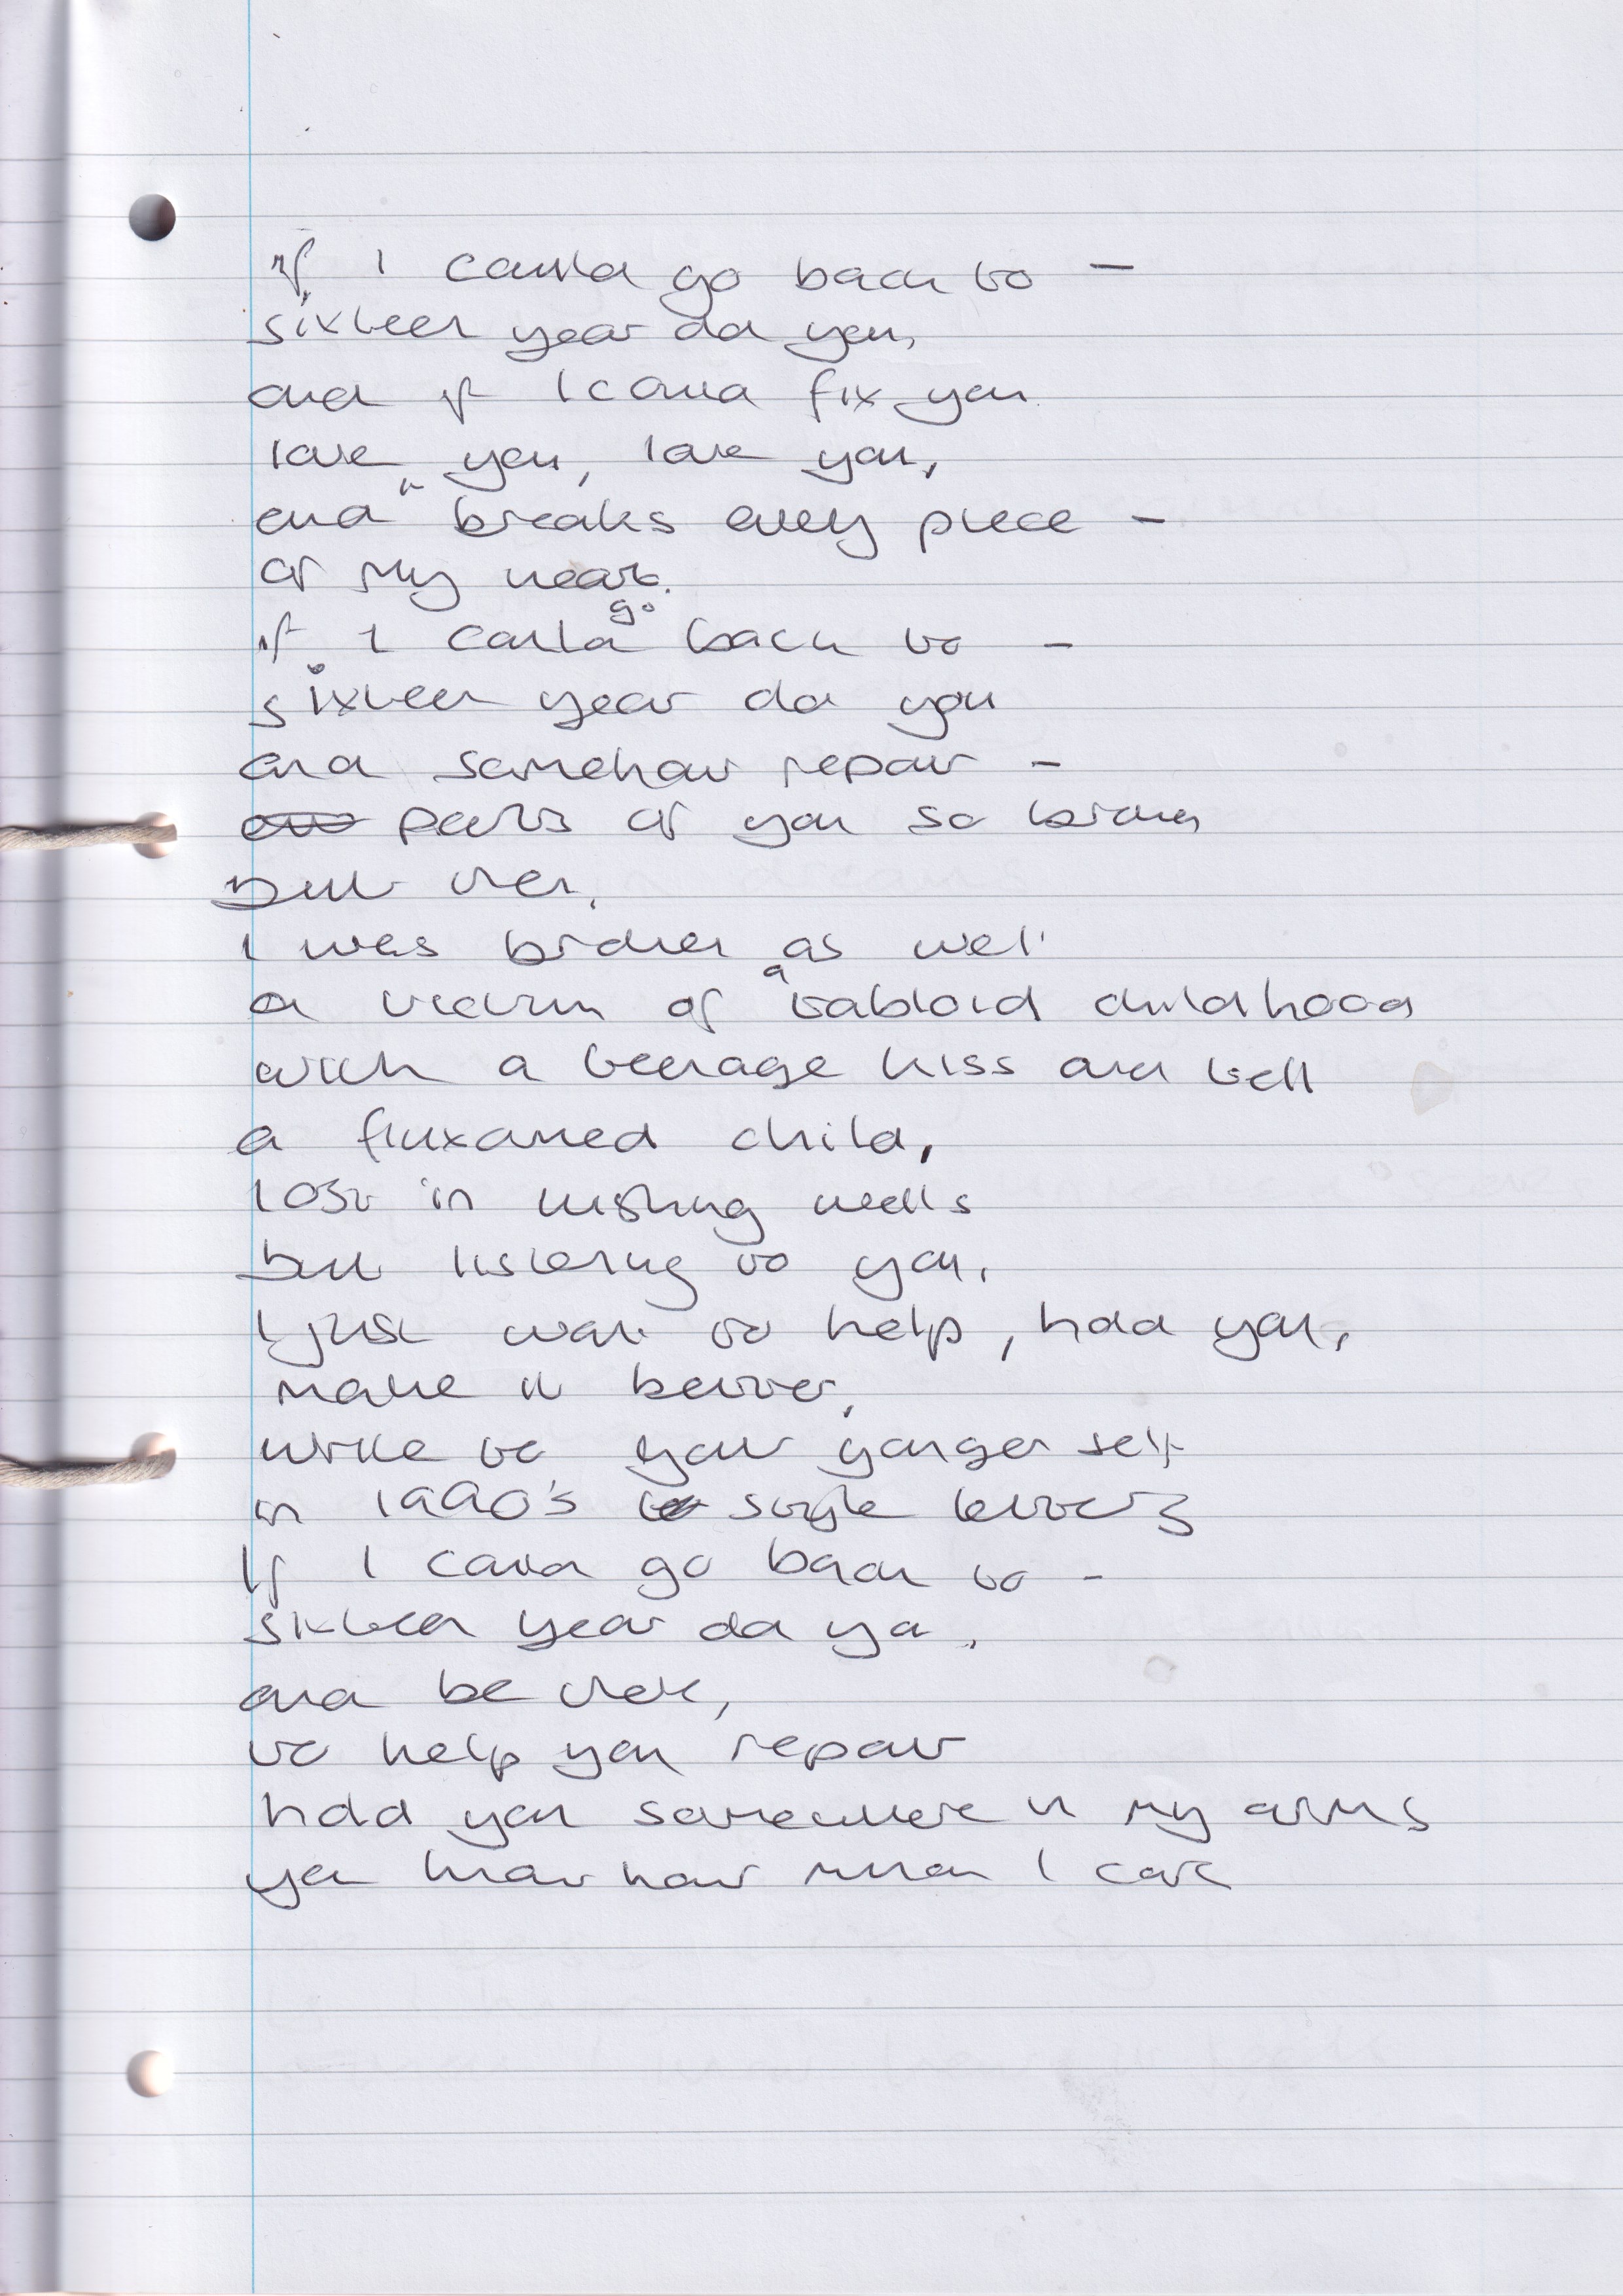 if I could go back to –
sixteen year old you,
and if I could fix you
love you, love you,
and it breaks every piece –
of my heart.
if I could go back to –
sixteen year old you
and somehow repair –
parts of you so broken
but then,
I was broken as well
a victim of a tabloid childhood
with a teenage kiss and tell
a fluxamed child,
lost in wishing wells
but listening to you,
I just want to help, hold you,
make it better,
write to your younger self
in 1990's style letters
If I could go back to –
sixteen year old you,
and be there,
to help you repair
hold you somewhere in my arms
you know how much I care